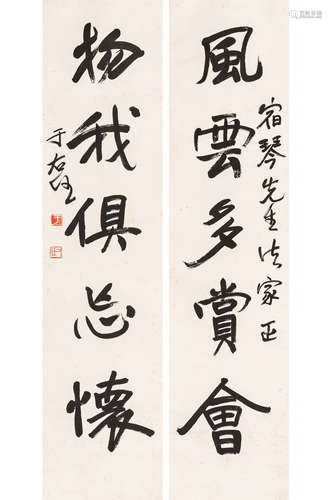 風雲多賞會
宿琴先生法家正
物我俱忘懷
于右任